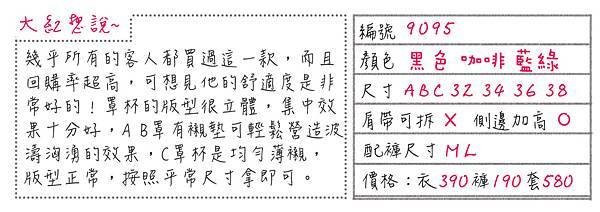 大紅想說~
幾乎所有的客人都買過這一款，而且
回購率超高，可想見他的舒適度是非
常好的！罩杯的版型很立體，集中效
果十分好，AB罩有襯墊可輕鬆營造波
濤洶湧的效果，C罩杯是均勻薄襯，
版型正常，按照平常尺寸拿即可。
編號 9095
顏色 黑色 咖啡 藍綠
尺寸 ABC 32 34 36 38
肩帶可拆 X 側邊加高 O
配褲尺寸 ML
價格：衣390褲190套580